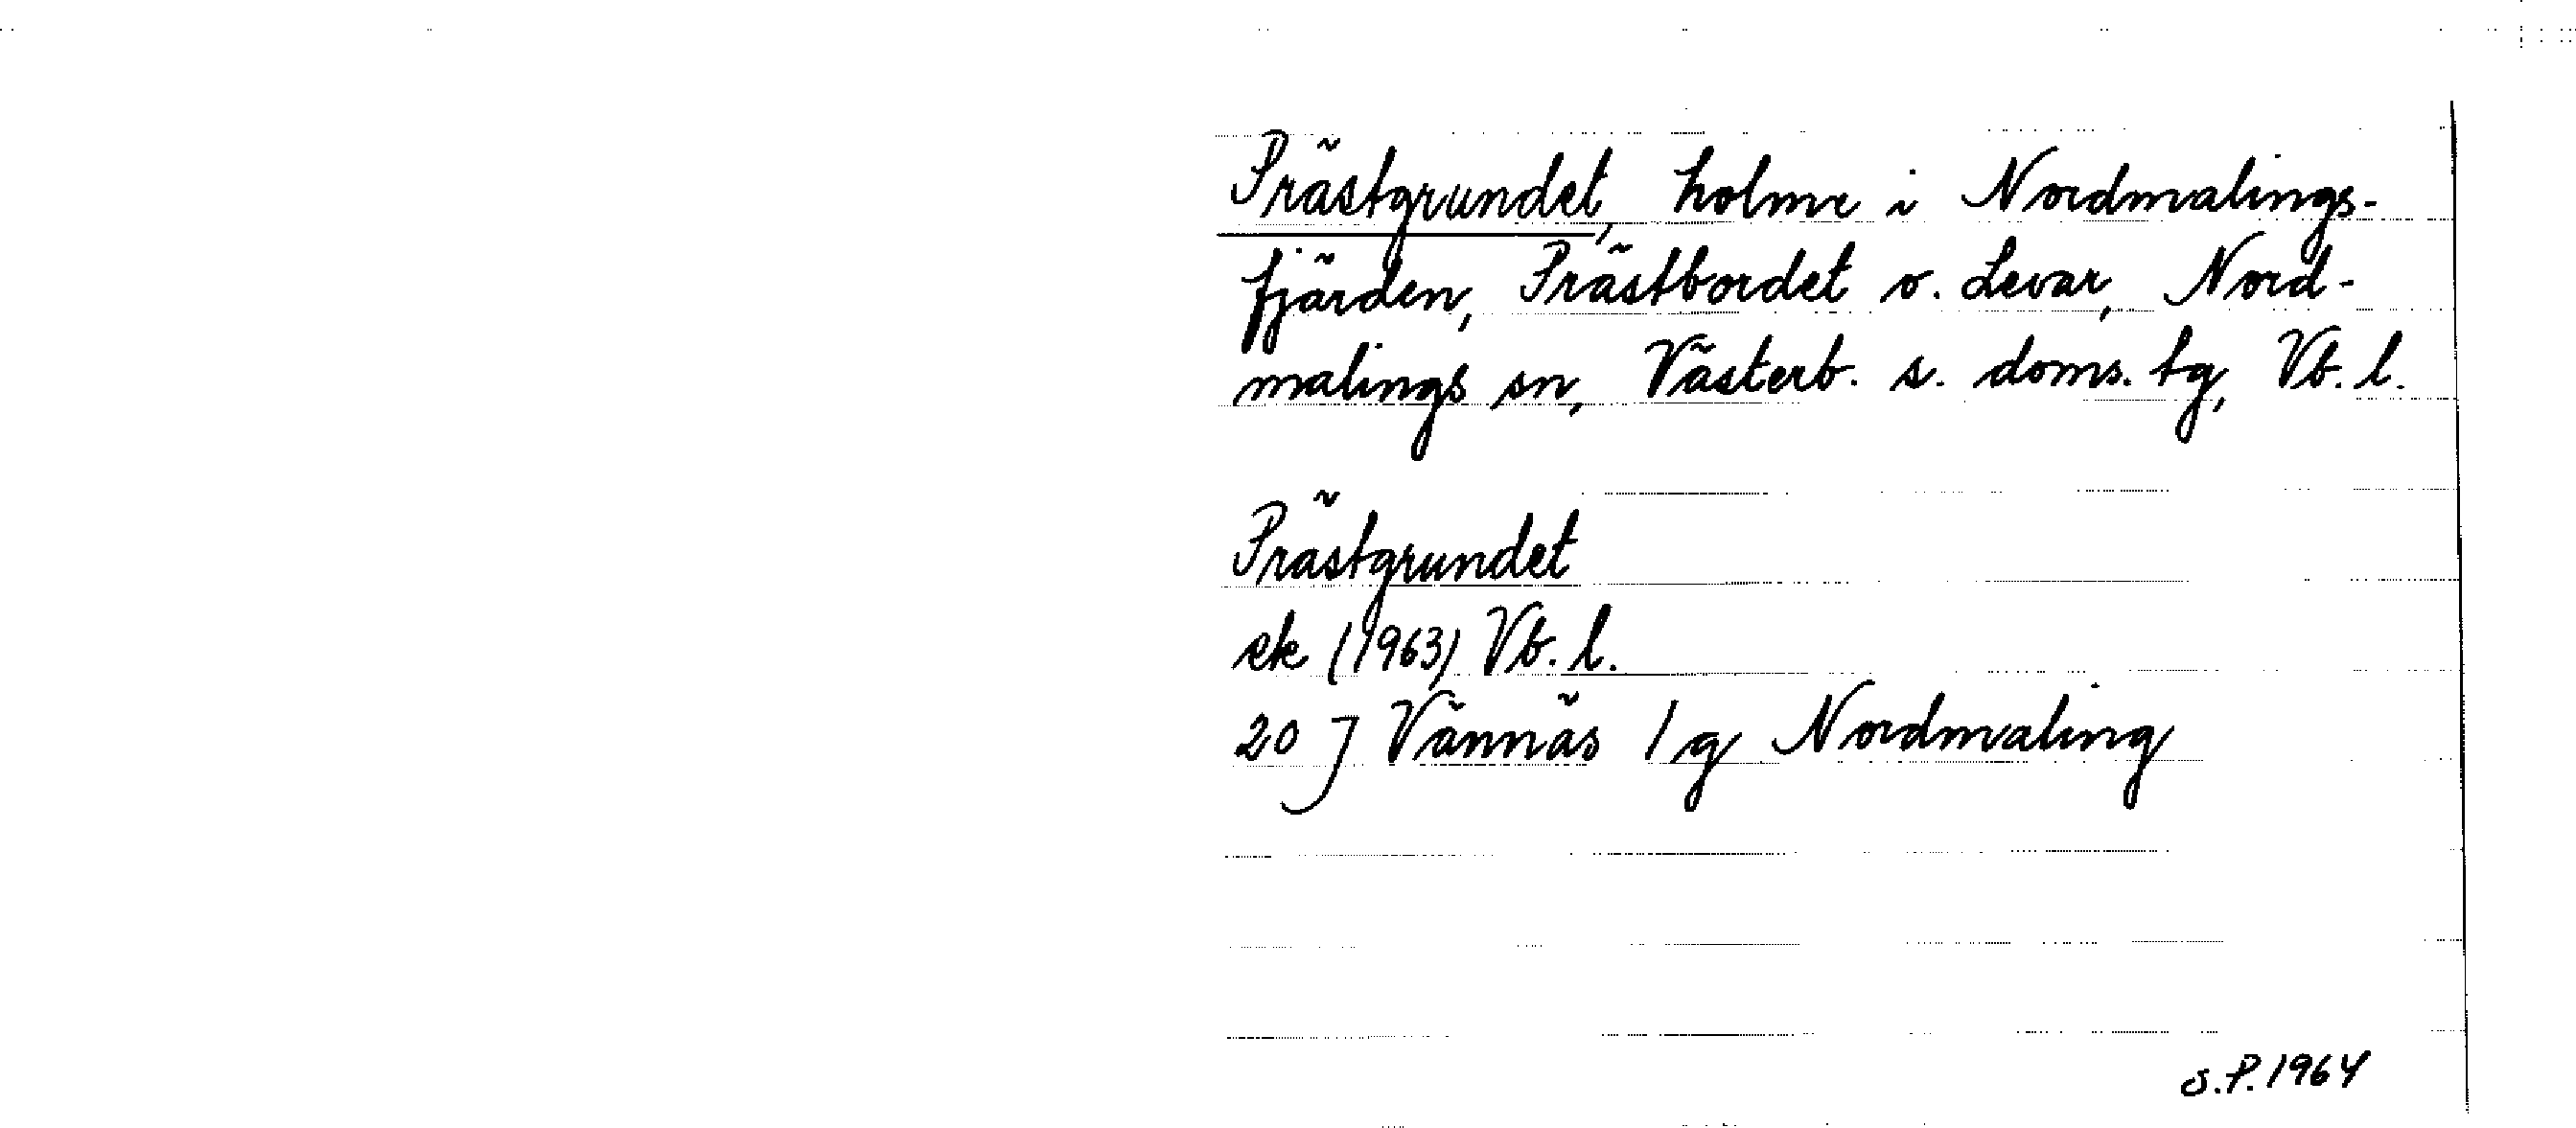 Prästgrundet, holme i Nordmalings-
fjärden, Prästbordet o. Levar, Nord-
malings sn, Västerb. s. doms. tg, Vb. l.
Prästgrundet
ek (1963) Vb. l.
20 J Vännäs 1 g Nordmaling
S.P. 1964